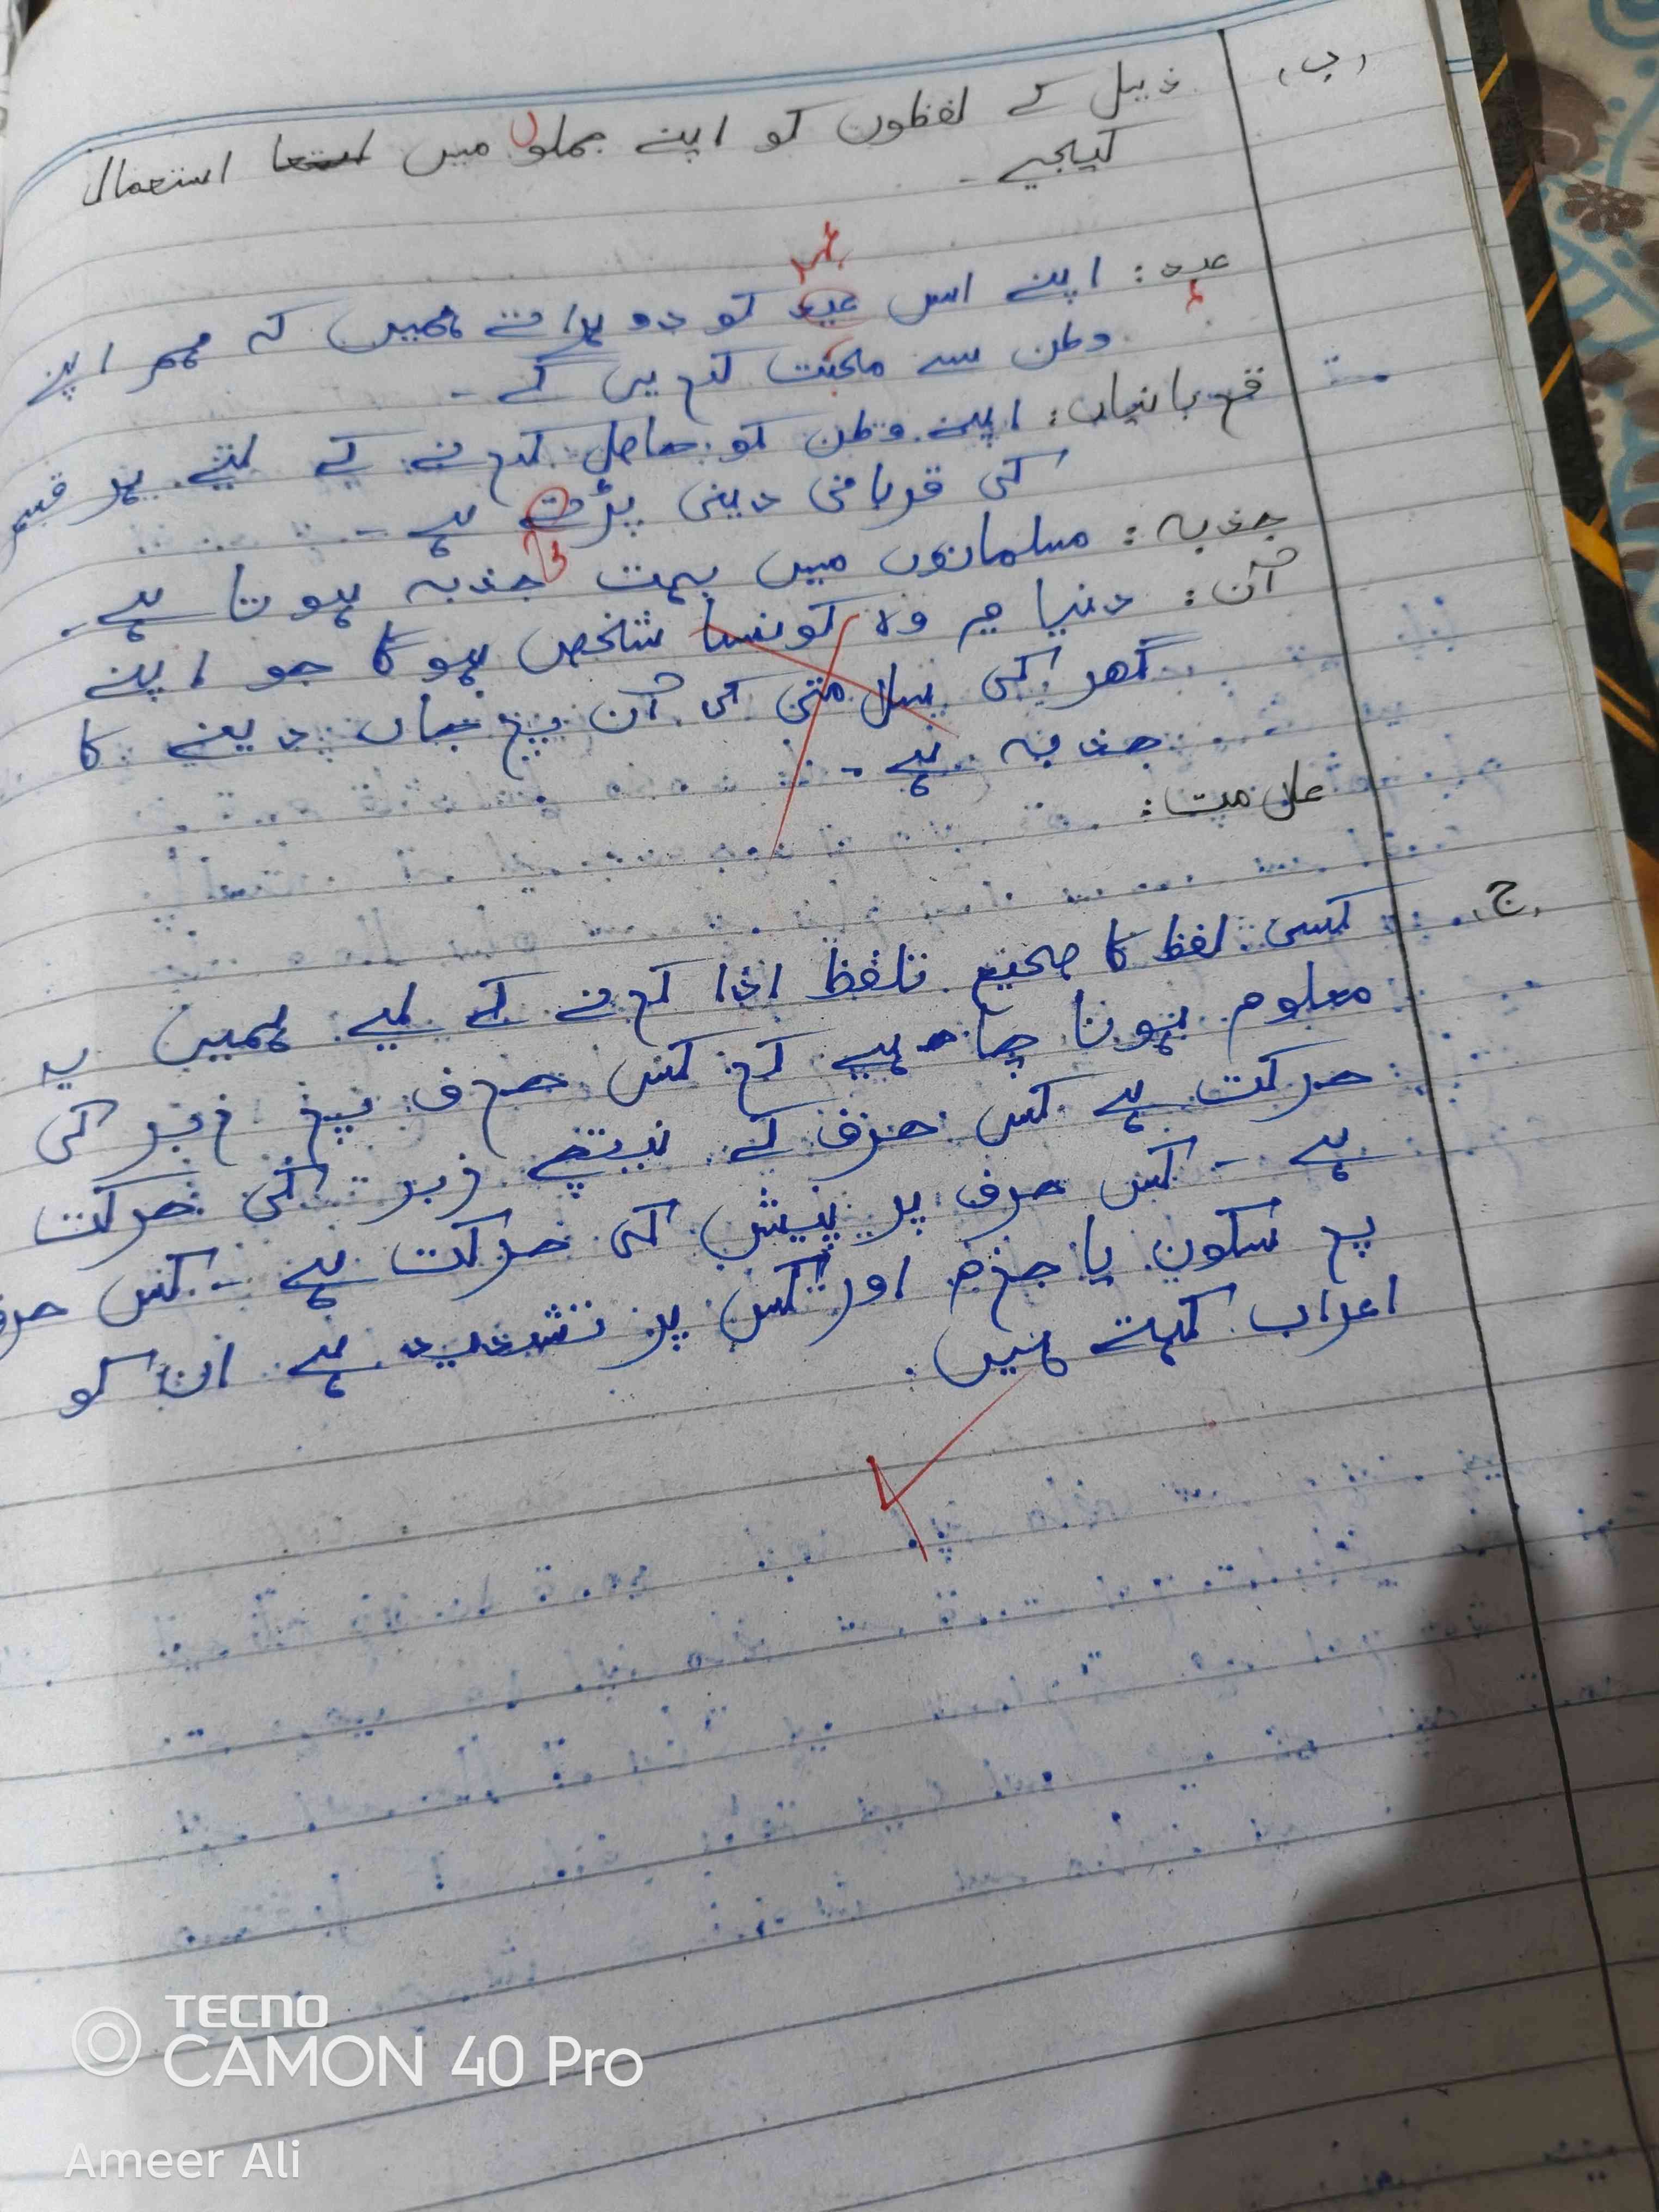 (ب)
ذیل کے لفظوں کو اپنے جملوں میں استعمال
کیجیے۔
عہد
عہد: اپنے اس عہد کو دوہراتے ہمیں کہ ہم اپنے
وطن سے محبت کریں گے۔
قربانیاں: اپنے وطن کو حاصل کرنے کے لئے ہر قسم
کی قربانی دینی پڑتے ہے۔
تی
جذبہ: مسلمانوں میں بہت جذبہ ہوتا ہے۔
آن: دنیا میں وہ کونسا شخص ہوگا جو اپنے
گھر کی سلامتی کی آن پر جاں دینے کا
جذبہ ہے۔
علامت:
ج
کسی لفظ کا صحیح تلفظ ادا کرنے کے لیے ہمیں یہ
معلوم ہونا چاہیے کہ کس حرف پر زبر کی
حرکت ہے کس حرف کے نیچے زیر کی حرکت
ہے۔ کس حرف پر پیش کی حرکت ہے۔ کس حرف
پر سکون یا جزم اور کس پر تشدید ہے ان کو
اعراب کہتے ہیں۔
TECNO
CAMON 40 Pro
Ameer Ali